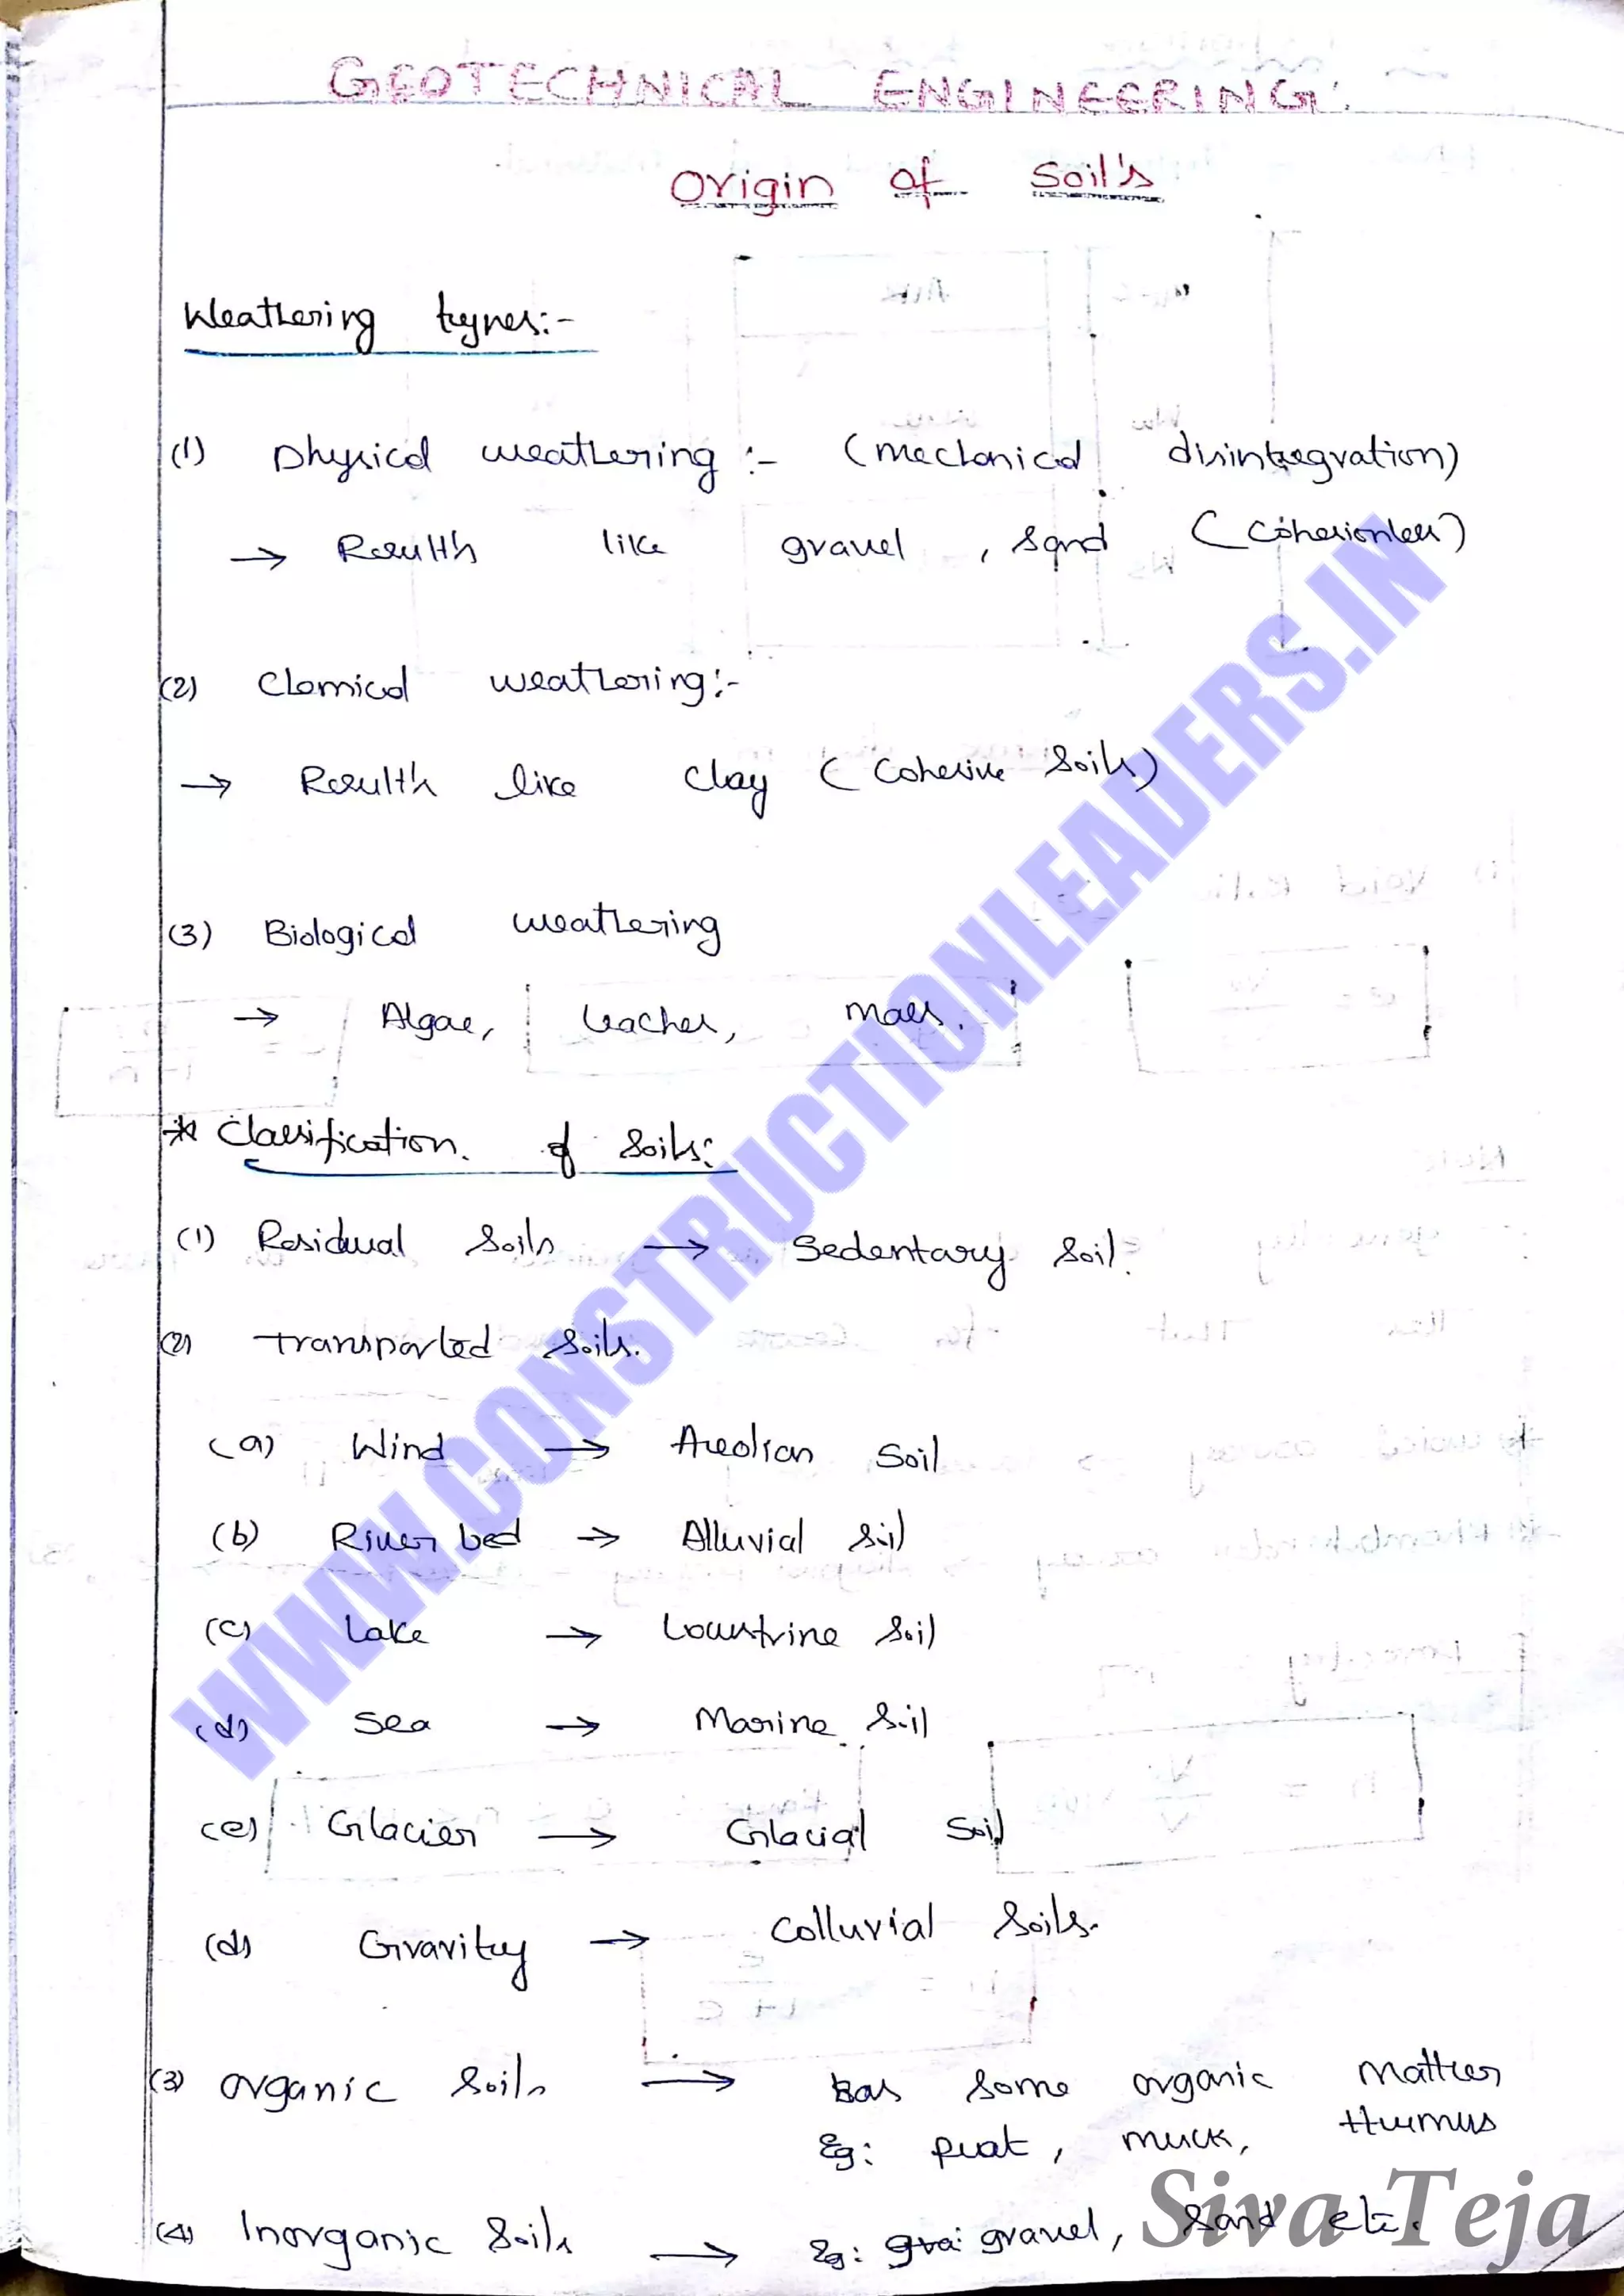 GEOTECHNICAL ENGINEERING:
Origin of Soil's
Weathering types:-
(1) Physical weathering :- (mechanical disintegration)
→ Results like gravel, Sand (Cohesionless)
(2) Chemical weathering:-
→ Results like Clay (Cohesive Soils)
(3) Biological weathering
→ Algae, Leaches, Moss.
* Classification of Soils:
(1) Residual Soils → Sedentary Soil.
(2) Transported Soils.
(a) Wind → Aeolian Soil
(b) River bed → Alluvial Soil
(c) Lake → Lacustrine Soil
(d) Sea → Marine Soil
(e) Glacier → Glacial Soil
(d) Gravity → Colluvial Soils.
(3) Organic Soils → Has Some organic Matter
Eg: peat, muck, Humus
(4) Inorganic Soils → Eg: gravel, Sand etc.
WWW.CONSTRUCTIONLEADERS.IN
Siva Teja